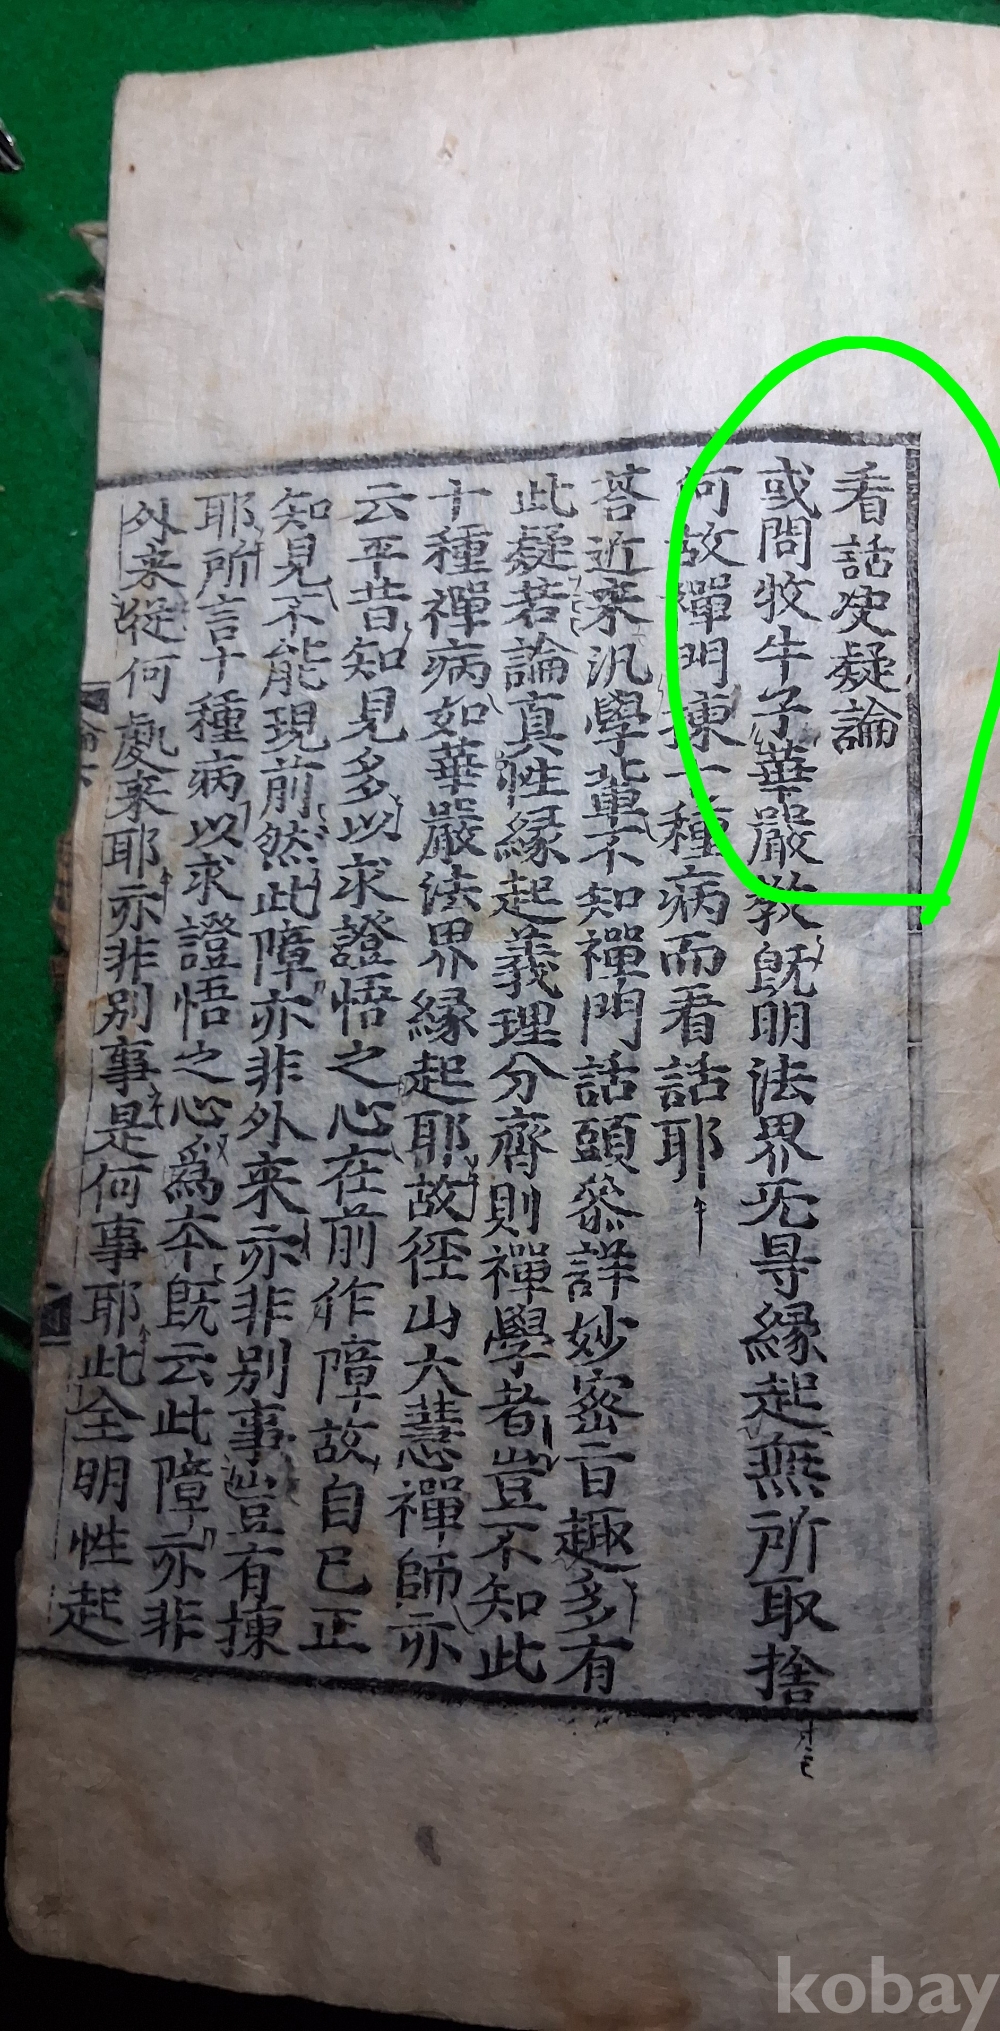 看話决疑論
或問牧牛子華嚴教旣明法界无㝵緣起無所取捨
何故禪門揀一種病而看話耶
荅近來汎學軰不知禪門話頭叅詳妙密旨趣多有
此疑若論真性緣起義理分齊則禪學者豈不知此
十種禪病如華嚴法界緣起耶故徑山大慧禪師亦
云平昔知見多以求證悟之心在前作障故自己正
知見不能現前然此障亦非外来亦非别事豈有揀
耶所言十種病以求證悟之心爲夲旣云此障亦非
外来從何處來耶亦非别事是何事耶此全明性起
kobay